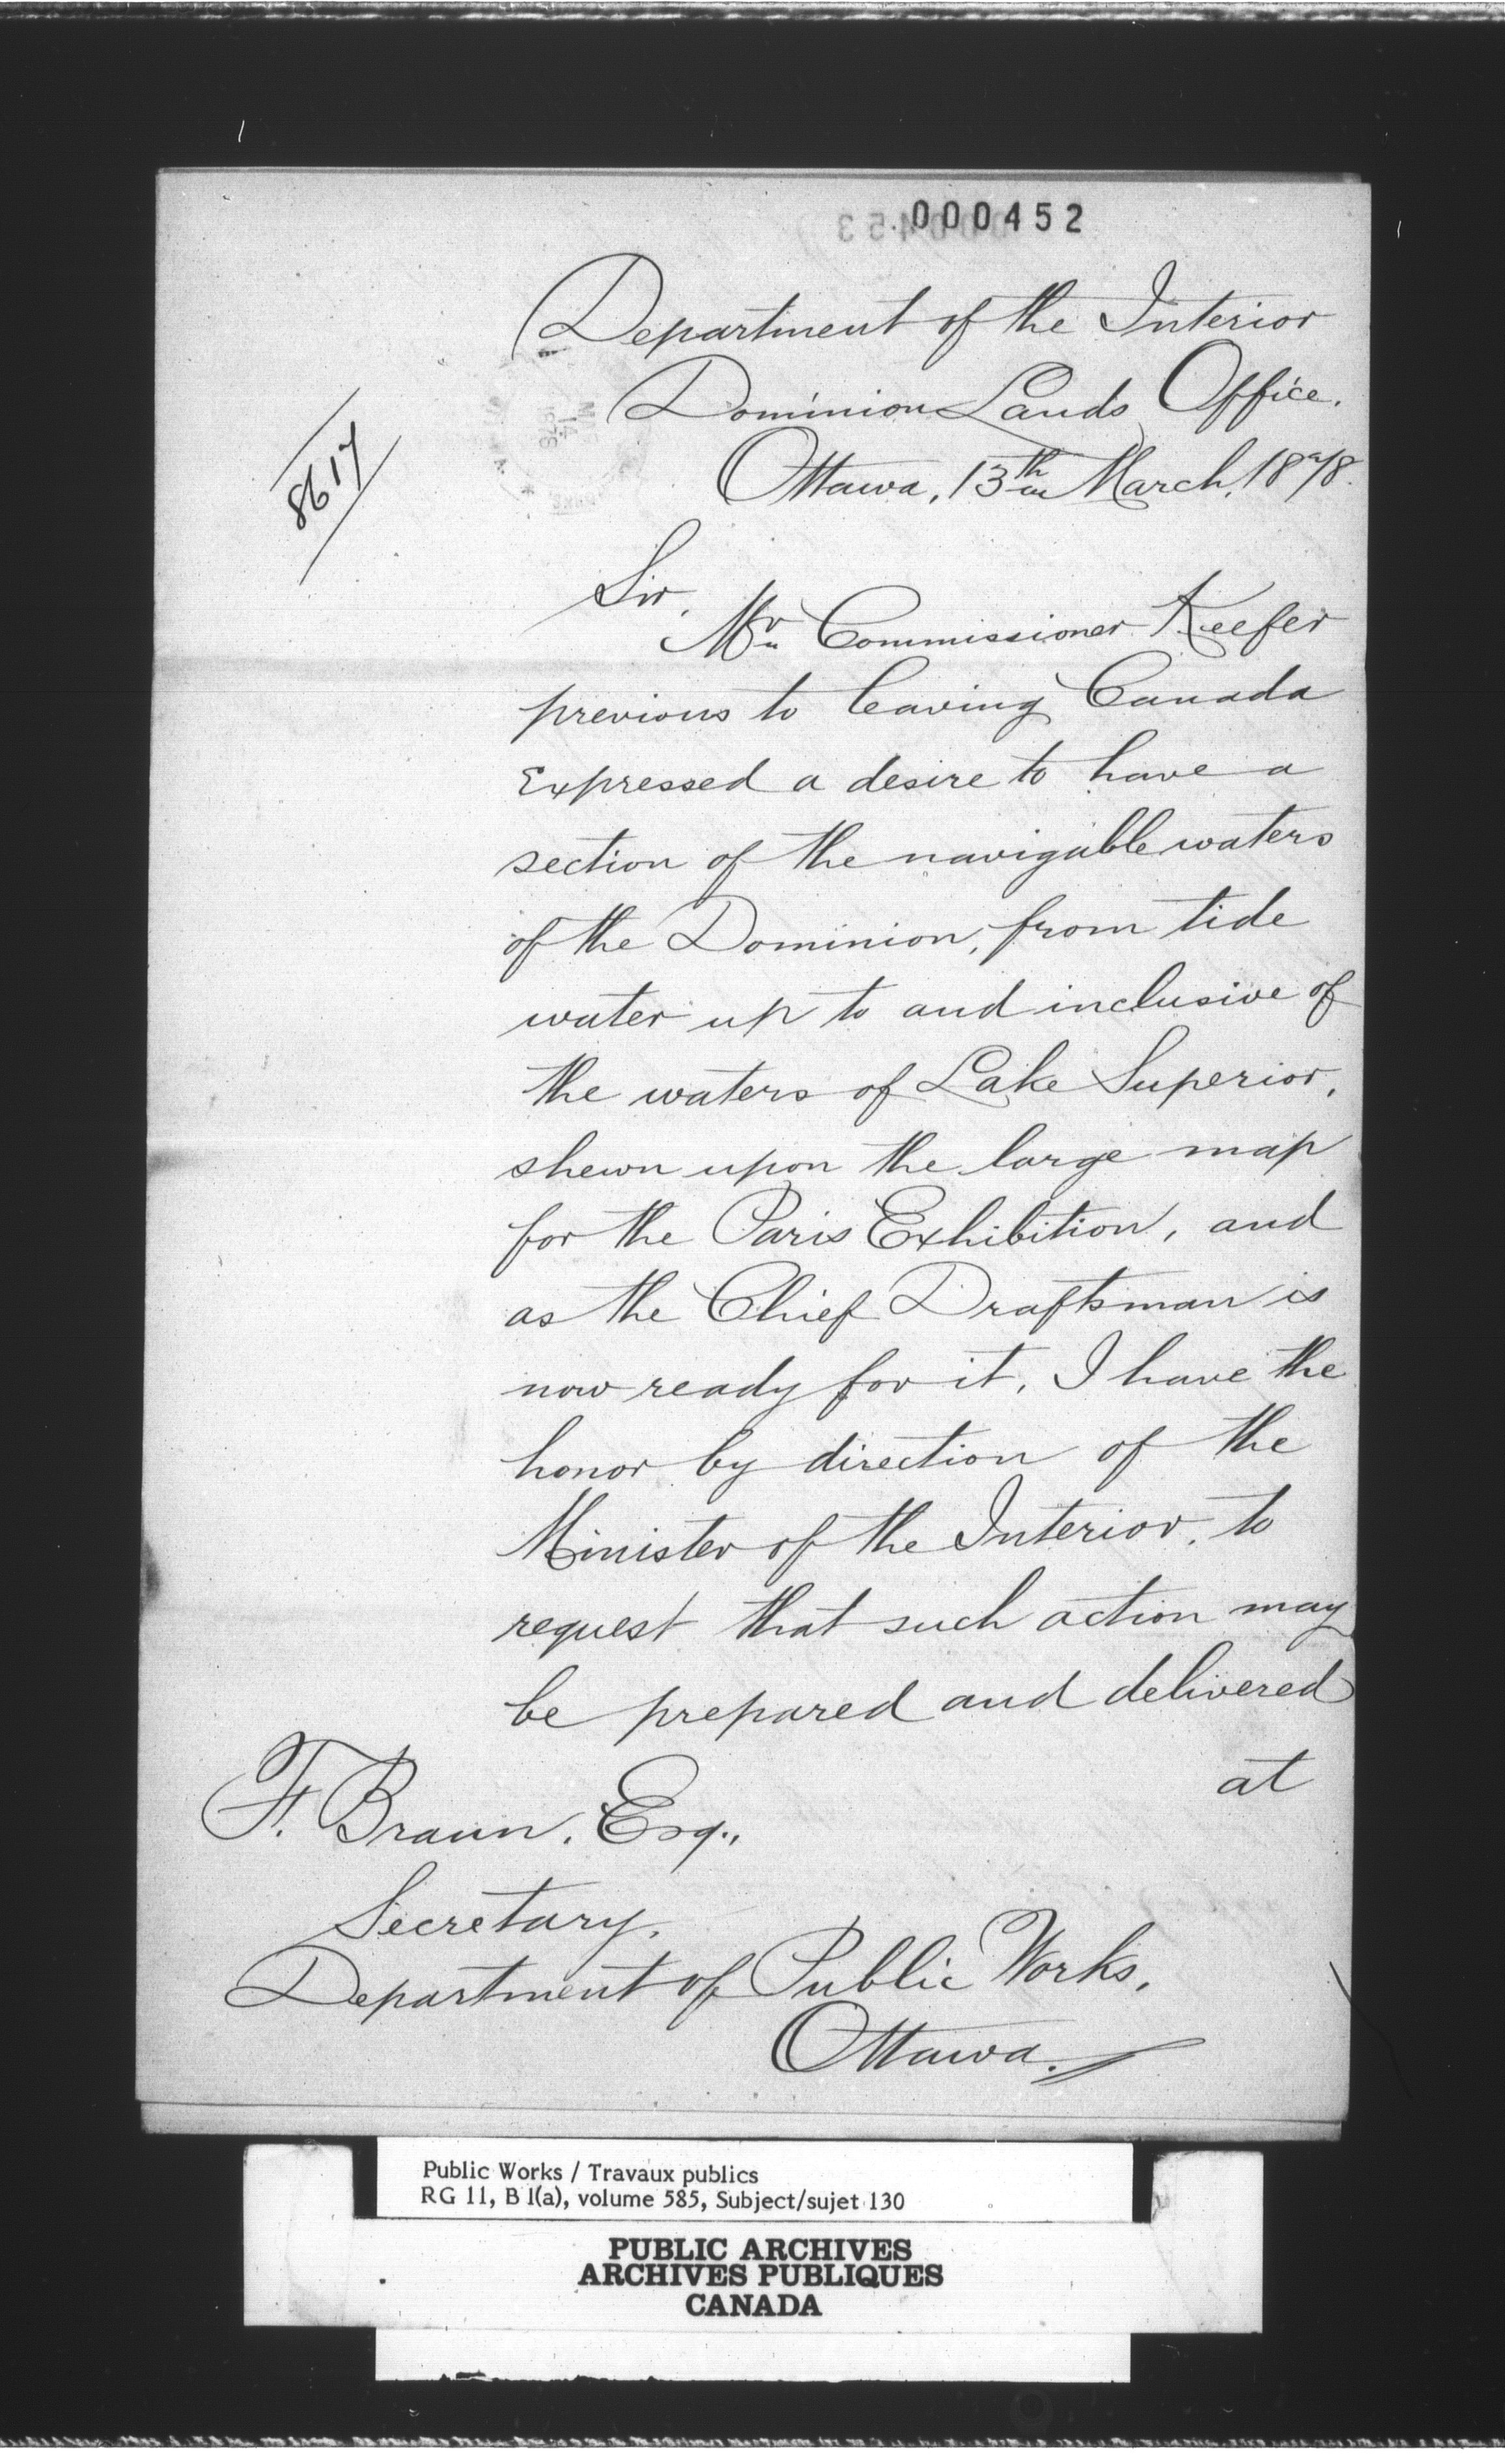 000452
Department of the Interior
Dominion Lands Office.
Ottawa, 13th March, 1878.
8617
Sir,
Mr Commissioner Keefer
previous to leaving Canada
Expressed a desire to have a
section of the navigable waters
of the Dominion, from tide
water up to and inclusive of
the waters of Lake Superior,
shewn upon the large map
for the Paris Exhibition, and
as the Chief Draftsman is
now ready for it, I have the
honor by direction of the
Minister of the Interior, to
request that such action may
be prepared and delivered
at
F. Braun, Esq.,
Secretary,
Department of Public Works,
Ottawa.
Public Works / Travaux publics
RG 11, B 1(a), volume 585, Subject/sujet 130
PUBLIC ARCHIVES
ARCHIVES PUBLIQUES
CANADA